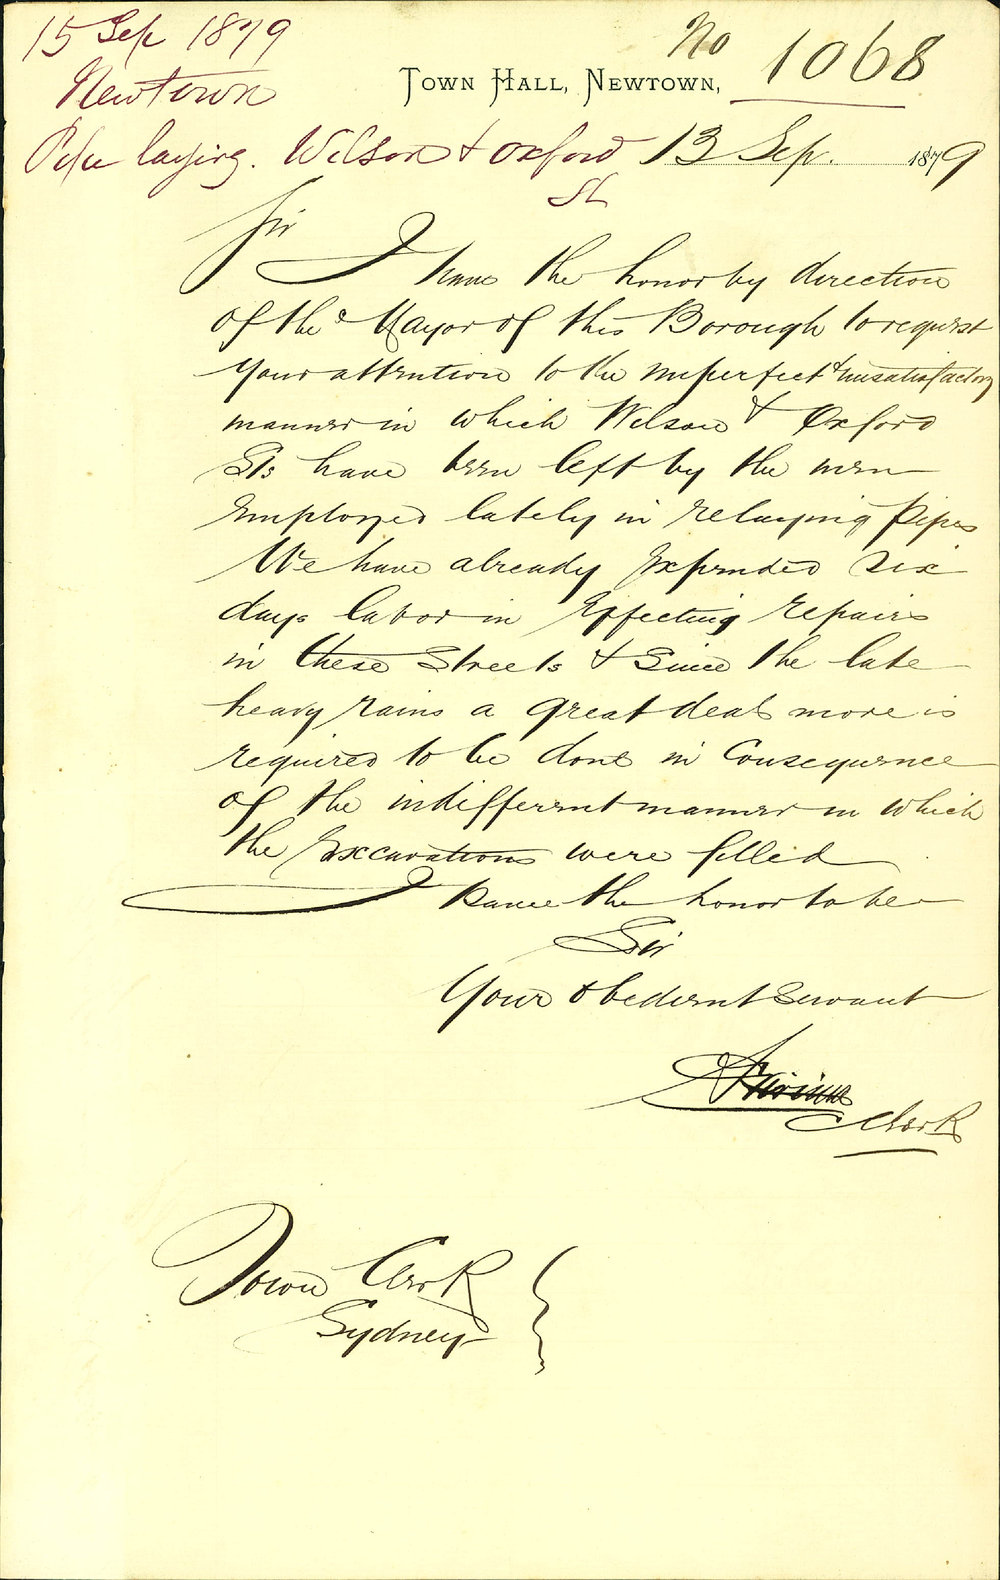 15 Sep 1879
No 1068
Newtown
Town Hall, Newtown,
Pipe laying. Wilson & Oxford
St
13 Sep. 1879
Sir
I have the honor by direction
of the Mayor of this Borough to request
your attention to the imperfect & unsatisfactory
manner in which Wilson & Oxford
Sts have been left by the men
employed lately in relaying pipes
We have already expended six
days labor in effecting repairs
in these streets & since the late
heavy rains a great deal more is
required to be done in consequence
of the indifferent manner in which
the excavations were filled
I have the honor to be
Sir
Your obedient servant
Clerk
Town Clerk
Sydney